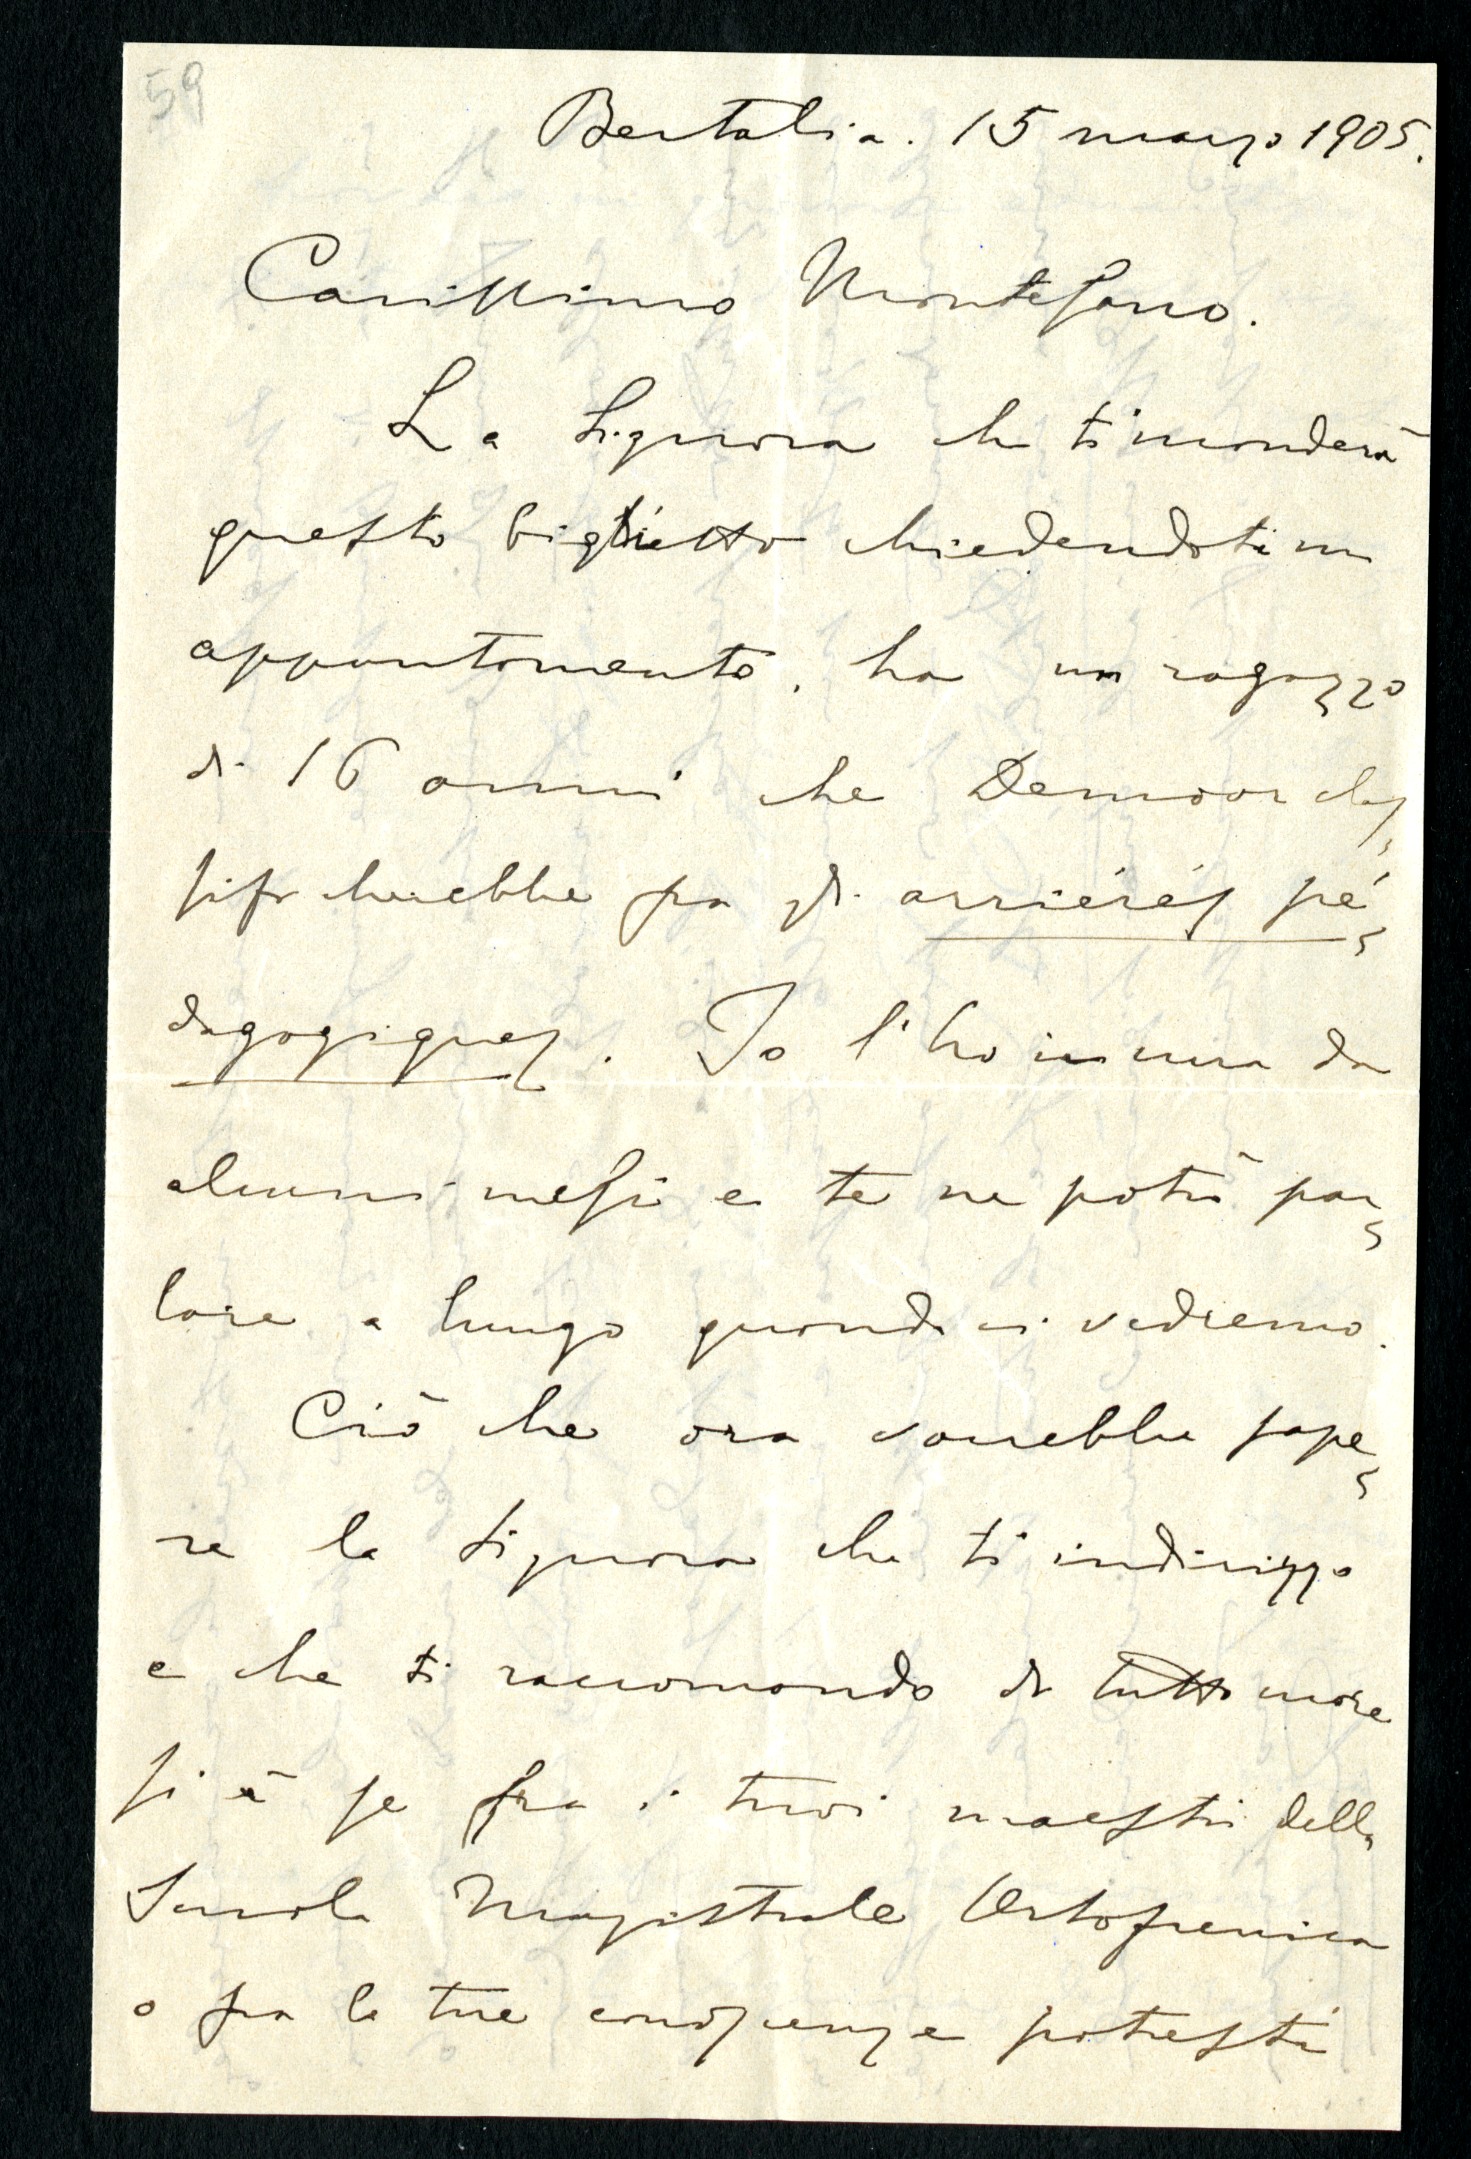 59
Bertalia. 15 marzo 1905.
Carissimo Montesano.
La Signora che ti manderà
questo biglietto chiedendoti un
appuntamento, ha un ragazzo
di 16 anni che Demoor clas
sificherebbe fra gli arriérés pé
dagogiques. Io l'ho in cura da
alcuni mesi e te ne potrò par
lare a lungo quando ci vedremo.
Ciò che ora vorrebbe sape
re la Signora che ti indirizzo
e che ti raccomando di tutto cuore
si è se fra i tuoi maestri della
Scuola Magistrale Ortofrenica
o fra le tue conoscenze potresti